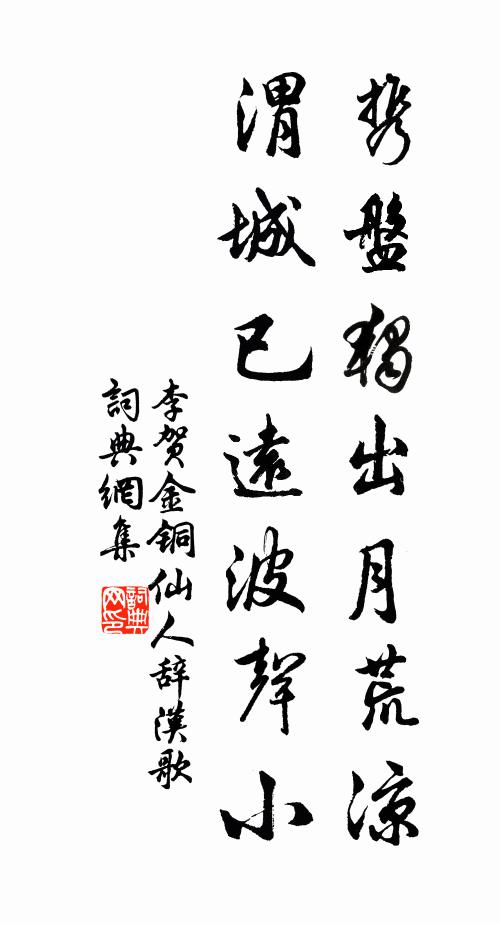 携盤獨出月荒涼
渭城已遠波聲小
李贺金銅仙人辞漢歌
詞典網集
詞典网印